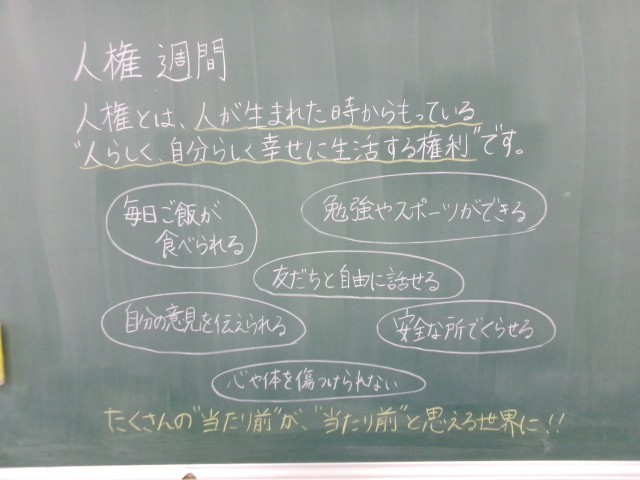 人権 週間
人権とは、人が生まれた時からもっている
"人らしく、自分らしく幸せに生活する権利"です。
毎日ご飯が
食べられる
勉強やスポーツができる
友だちと自由に話せる
自分の意見を伝えられる
安全な所でくらせる
心や体を傷つけられない
たくさんの"当たり前"が、"当たり前"と思える世界に!!